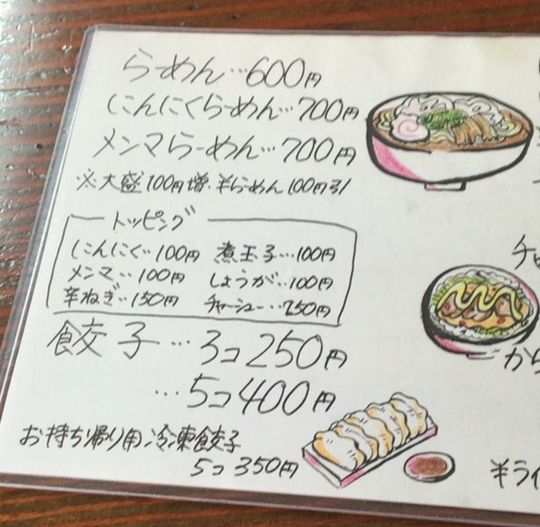 らーめん…600円
にんにくらーめん…700円
メンマらーめん…700円
※大盛100円増・半らーめん100円引
トッピング
にんにく…100円 煮玉子…100円
メンマ…100円 しょうが…100円
辛ねぎ…150円 チャーシュー…250円
餃子…3コ250円
…5コ400円
お持ち帰り用冷凍餃子
5コ350円
チャ
から
半ライ